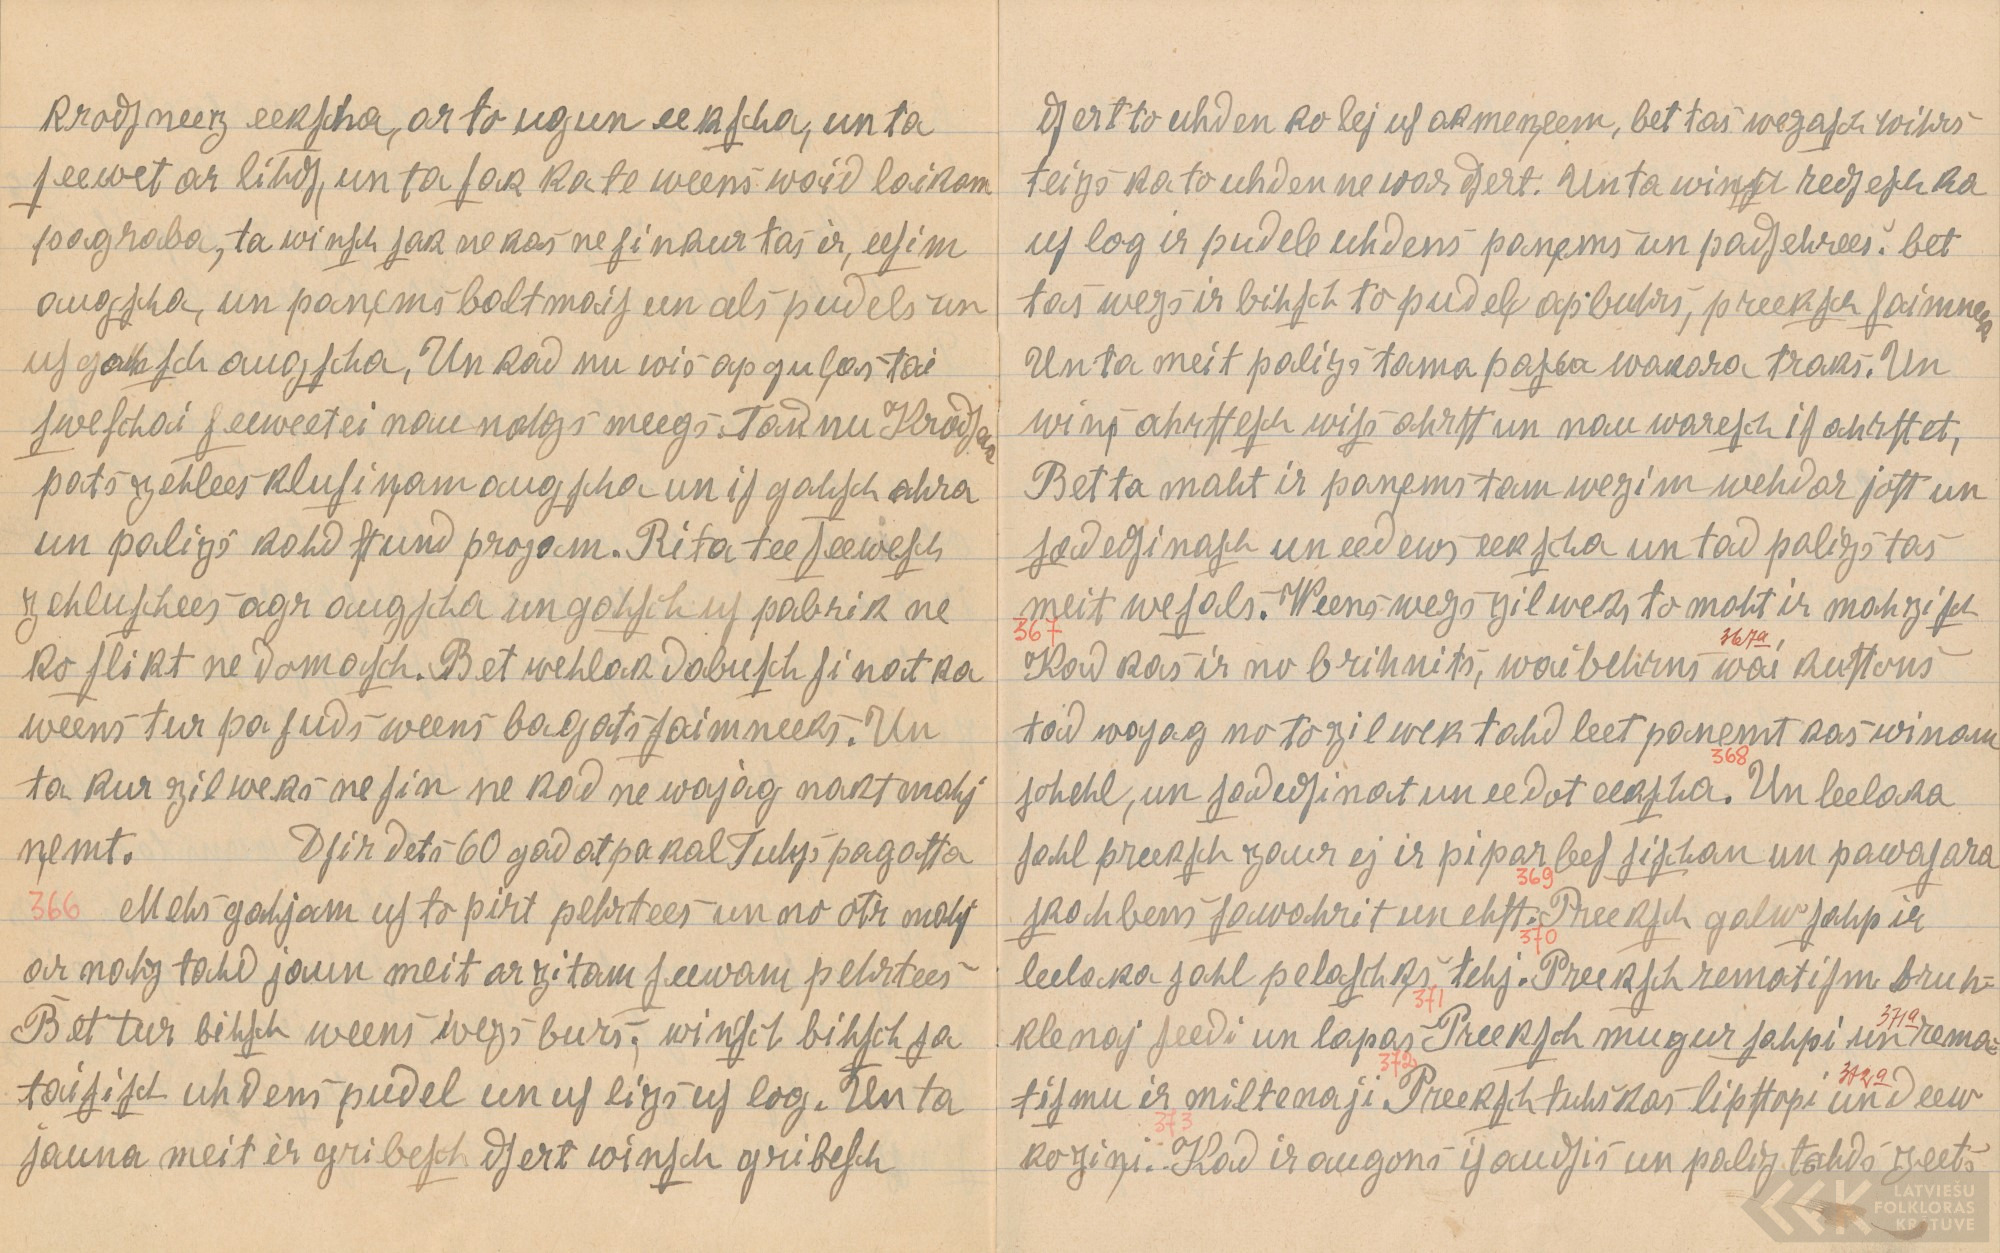 krodſneez eekſcha, ar to ugun eekſcha, un ta
ſeewet ar lihdſ, un ta ſak ka te weens waid laikam
pagraba, ta winſch ſak ne kas ne ſin kur tas ir, eeſim
augſcha, un paņems baltmaiſ un als pudels un
uſ gahſch augſcha, Un kad nu wis apguļas tai
ſweſchai ſeeweetei nau nahzs meegs. Tad nu Krodſneek
pats zehlees kluſiņam augſcha un iſ gahſch ahra
un palizs kahd ſtund projam. Rita tee ſeeweſch
zehluſchees agr augſcha un gahſch uſ pabrik ne
ko ſlikt ne domaſch. Bet wehlak dabuſch ſinat ka
weens tur paſuds weens bagats ſaimneeks. Un
ta kur zilweks ne ſin ne kad ne wajag naktmahj
ņemt. Dſirdets 60 gad atpakal Tulzs pagaſta
366 Mehs gahjam uſ to pirt pehrtees un no otr mahj
ar nahz tahd jaun meit ar zitam ſeewam pehrtees
Bet tur bihſch weens wezs burs, winſch bihſch ſa
taiſiſch uhdens pudel un uſ lizs uſ log. Un ta
jauna meit ir gribeſch dſert winſch gribeſch
dſert to uhden ko lej uſ akmeņeem, bet tas wezaſch wihrs
teizs ka to uhden ne war dſert. Un ta winſch redſeſch ka
uſ log ir pudele uhdens paņems un padſehrees. bet
tas wezs ir bihſch to pudeļ apbuhrs, preekſch ſaimneek
Un ta meit palizs tama paſcha wakara traks. Un
winſ ahrſteſch wiſs ahrſt un nau wareſch iſ ahrſtet,
Bet ta maht ir paņems tam wezim wehdar joſt un
ſadedſinaſch un eedews eekſcha un tad palizs tas
meit weſals. Weens wezs zilweks to maht ir mahziſch
367
Kad kas ir no brihnits, wai behrns 367a wai kuſtons
tad wajag no to zilwek tahd leet paņemt kas winam
368
ſchehl, un ſadedſinat un eedot eekſcha. Un leelaka
ſahl preekſch zaur ej ir pipar beſ ſiſchan un pawaſara
369
ſkahbens ſawahrit un ehſt. Preekſch galw ſahp ir
370
leelaka ſahl pelaſchkſ tehj. Preekſch rematiſm bruh=
371
klenaj ſeedi un lapas Preekſch mugur ſahpi 371a un rema=
372
tiſmu ir miltenaji. Preekſch tuhskas lipſtapi 372a un deew
373
koziņi. Kad ir augons iſaudſis un paliz tahds zeets
LATVIEŠU
FOLKLORAS
KRĀTUVE